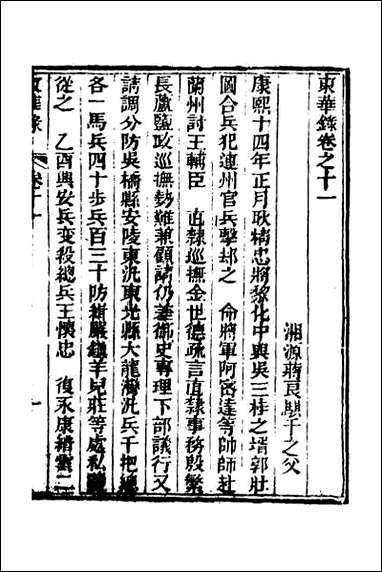 東華錄卷之十一
湘源蔣良騏千之父
康熙十四年正月耿精忠將黎化中與吳三桂之壻郭壯
圖合兵犯連州官兵擊却之 命將軍阿密達等帥師赴
蘭州討王輔臣 直隸巡撫金世德疏言直隸事務殷繁
長蘆鹽政巡撫勢難兼顧請仍差御史專理下部議行又
請調分防吳橋縣安陵東汛東光縣大龍灣汛兵千把總
各一馬兵四十步兵百三十防緝嚴鎮羊兒莊等處私鹽
從之 乙酉興安兵変殺總兵王懷忠 復永康縉雲二
東華錄 卷十一 一